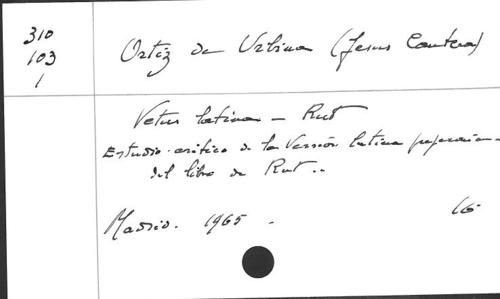 310
103
1
Ortiz de Urbina (Jesus Cantera)
Vetus latina - Rut
Estudio crítico de la Versión latina prejeronimiana
del libro de Rut..
Madrid. 1965 . 16